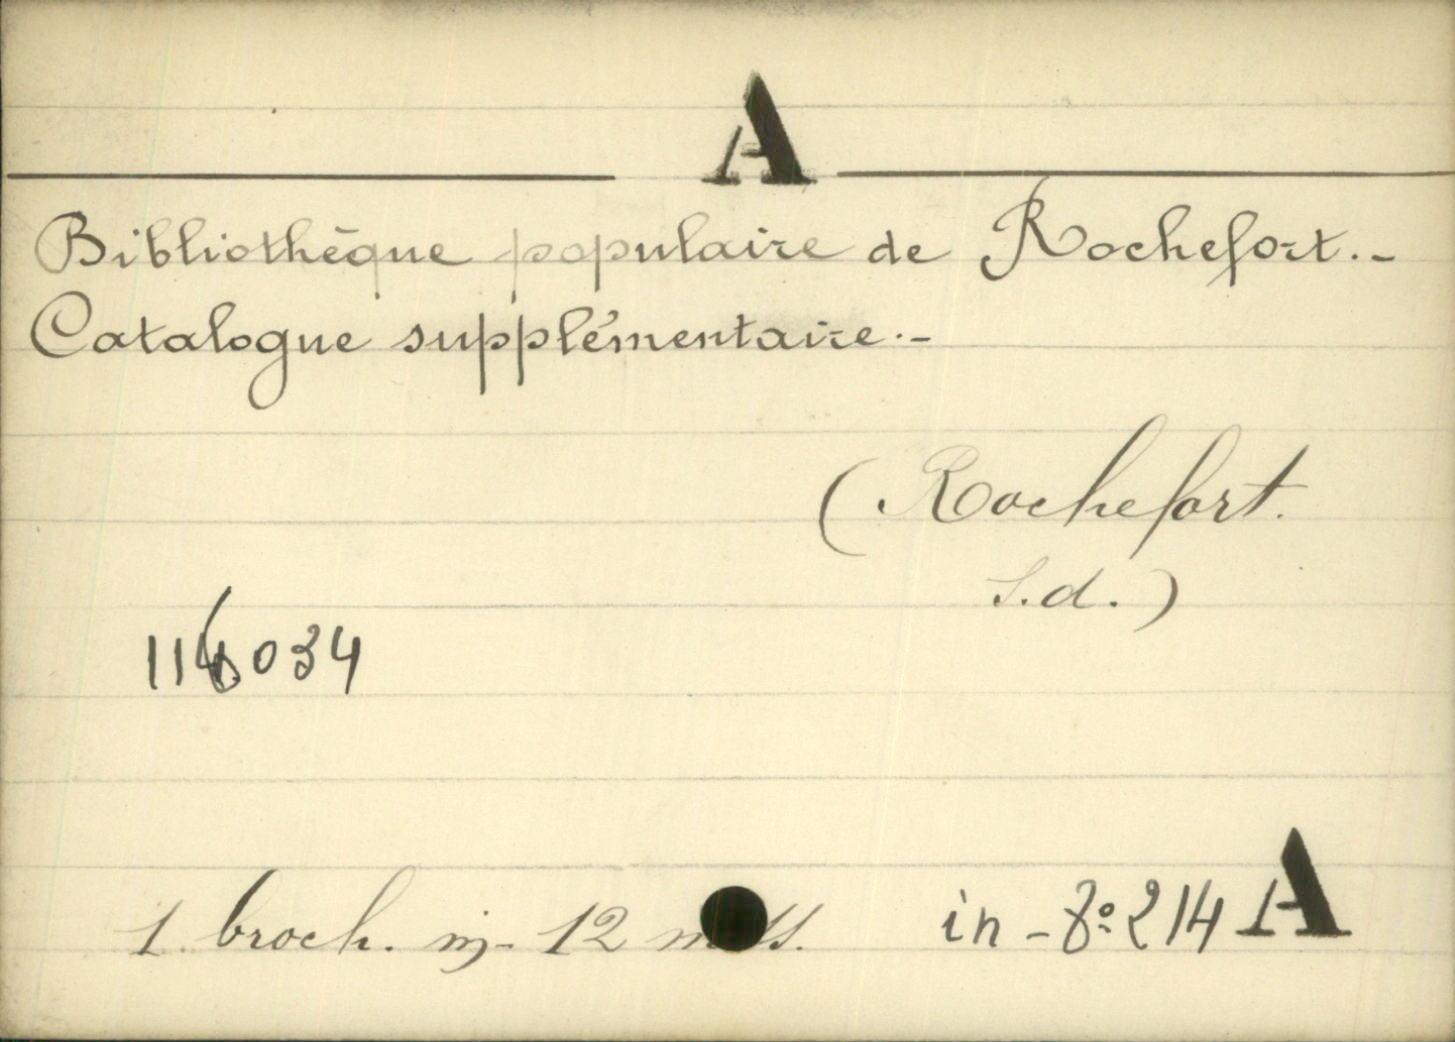 A
Bibliothèque populaire de Rochefort.-
Catalogue supplémentaire.-
(Rochefort.
S.d.)
116034
1 broch. in-12 in-8º 214 A